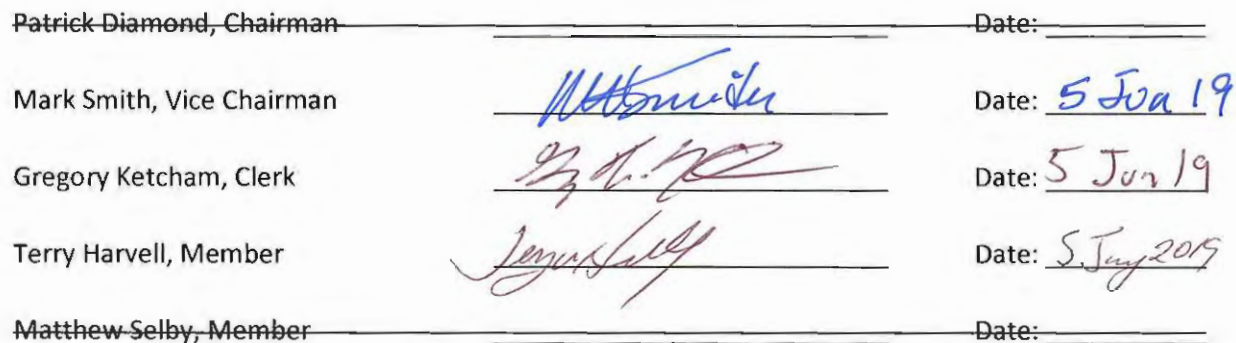 Patrick Diamond, Chairman Date:
Mark Smith, Vice Chairman Date: 5 Jun 19
Gregory Ketcham, Clerk Date: 5 Jun 19
Terry Harvell, Member Date: 5 2019
Matthew Selby, Member Date: